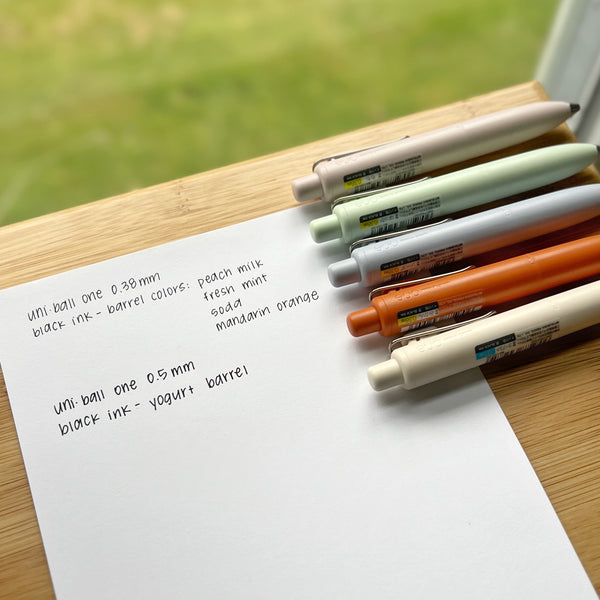 uni-ball one 0.38mm
black ink - barrel colors: peach milk
fresh mint
soda
mandarin orange
uni-ball one 0.5mm
black ink - yogurt barrel